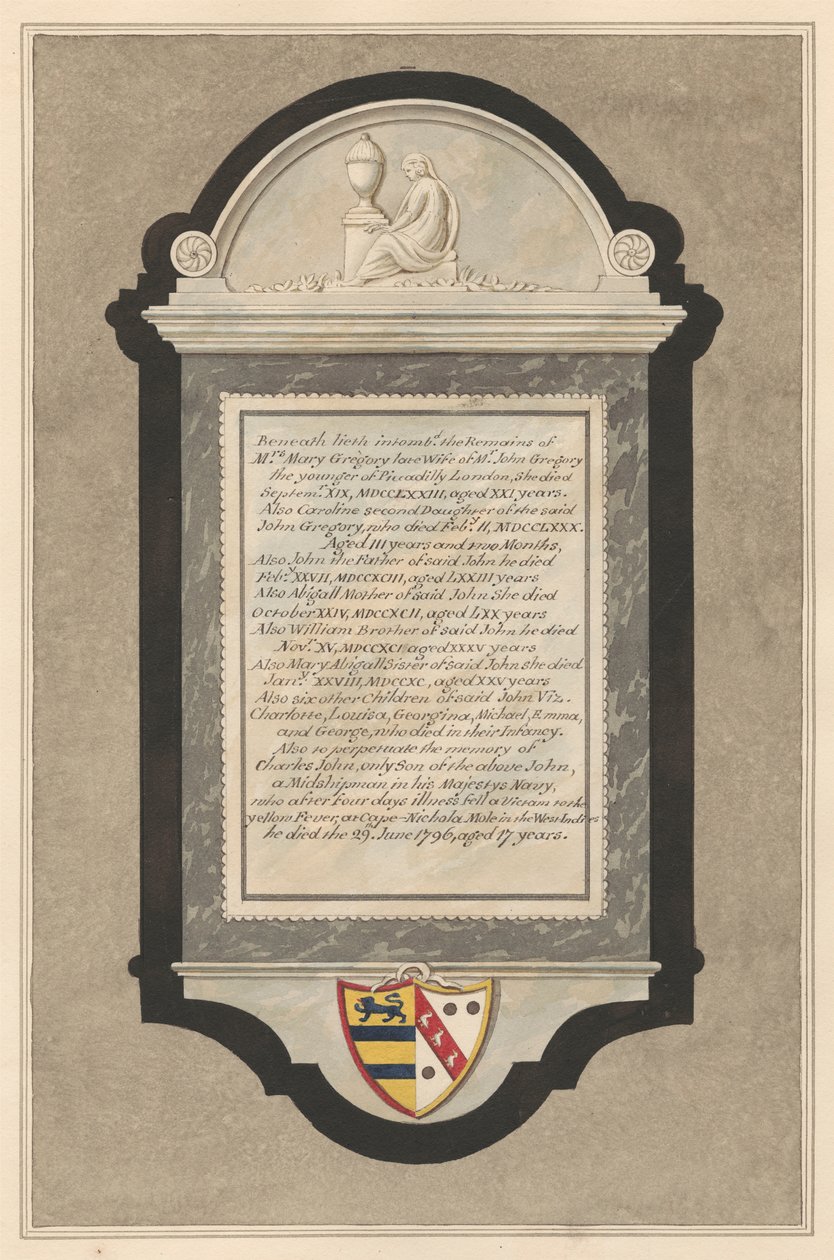 Beneath lieth intomb.d the Remains of
M.rs Mary Gregory late Wife of M.r John Gregory
the younger of Piccadilly London, She died
Septem.r XIX, MDCCLXXIII, aged XXI years.
Also Caroline second Daughter of the said
John Gregory, who died Feb.y II, MDCCLXXX.
Aged III years and two Months,
Also John the Father of said John he died
Feb.y XXVII, MDCCXCIII, aged LXXIII years
Also Abigall Mother of said John She died
October XXIV, MDCCXCII, aged LXX years
Also William Brother of said John he died
Nov.r XV, MDCCXCI aged XXXV years
Also Mary Abigall Sister of said John she died
Jan.y XXVIII, MDCCXC, aged XXV years
Also six other Children of said John Viz.
Charlotte, Louisa, Georgina, Michael, Emma,
and George, who died in their Infancy.
Also to perpetuate the memory of
Charles John, only Son of the above John,
a Midshipman in his Majestys Navy,
who after four days illness fell a Victam to the
yellow Fever, at Cape-Nichola Mole in the West Indies
he died the 29.th June 1796, aged 17 years.